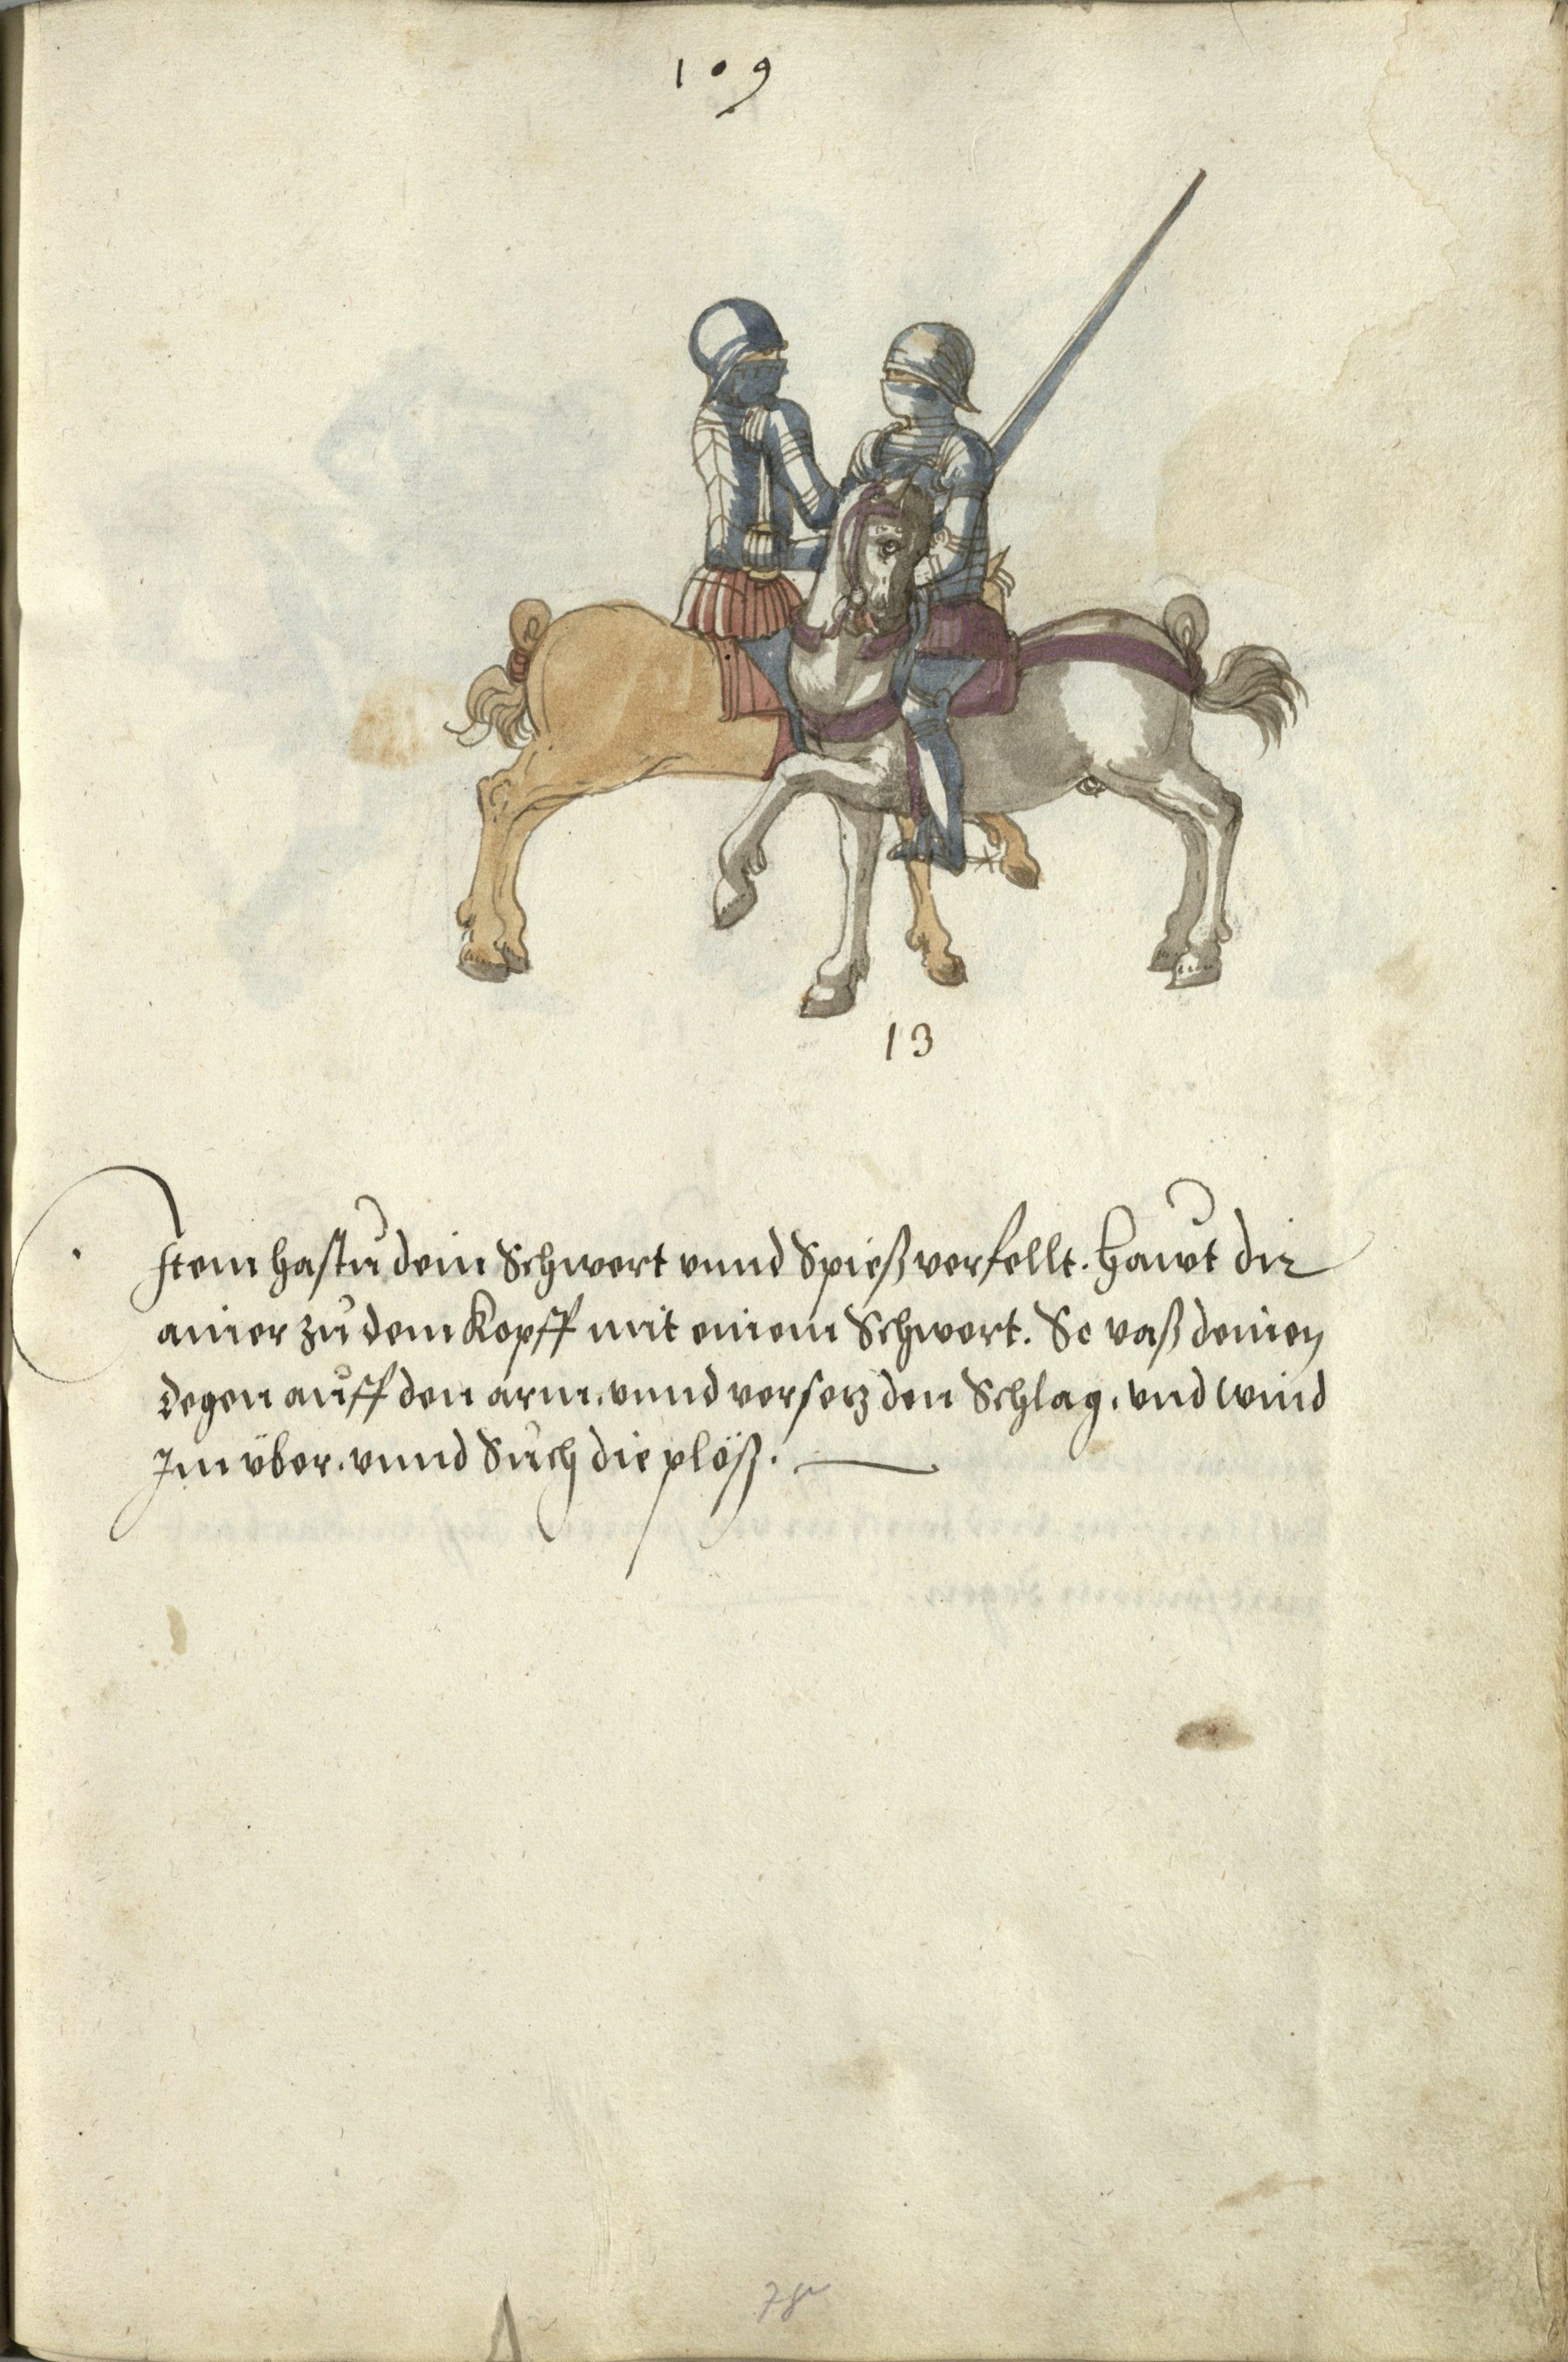 109
13
Item hastu dein Schwert vnnd Spieß verfellt. Hawt dir
ainer zu dem Kopff mit einem Schwert. So vaß deinen
degen auff den arm. vnnd versetz den Schlag. vnd wind
Im über. vnnd Such die plöß.